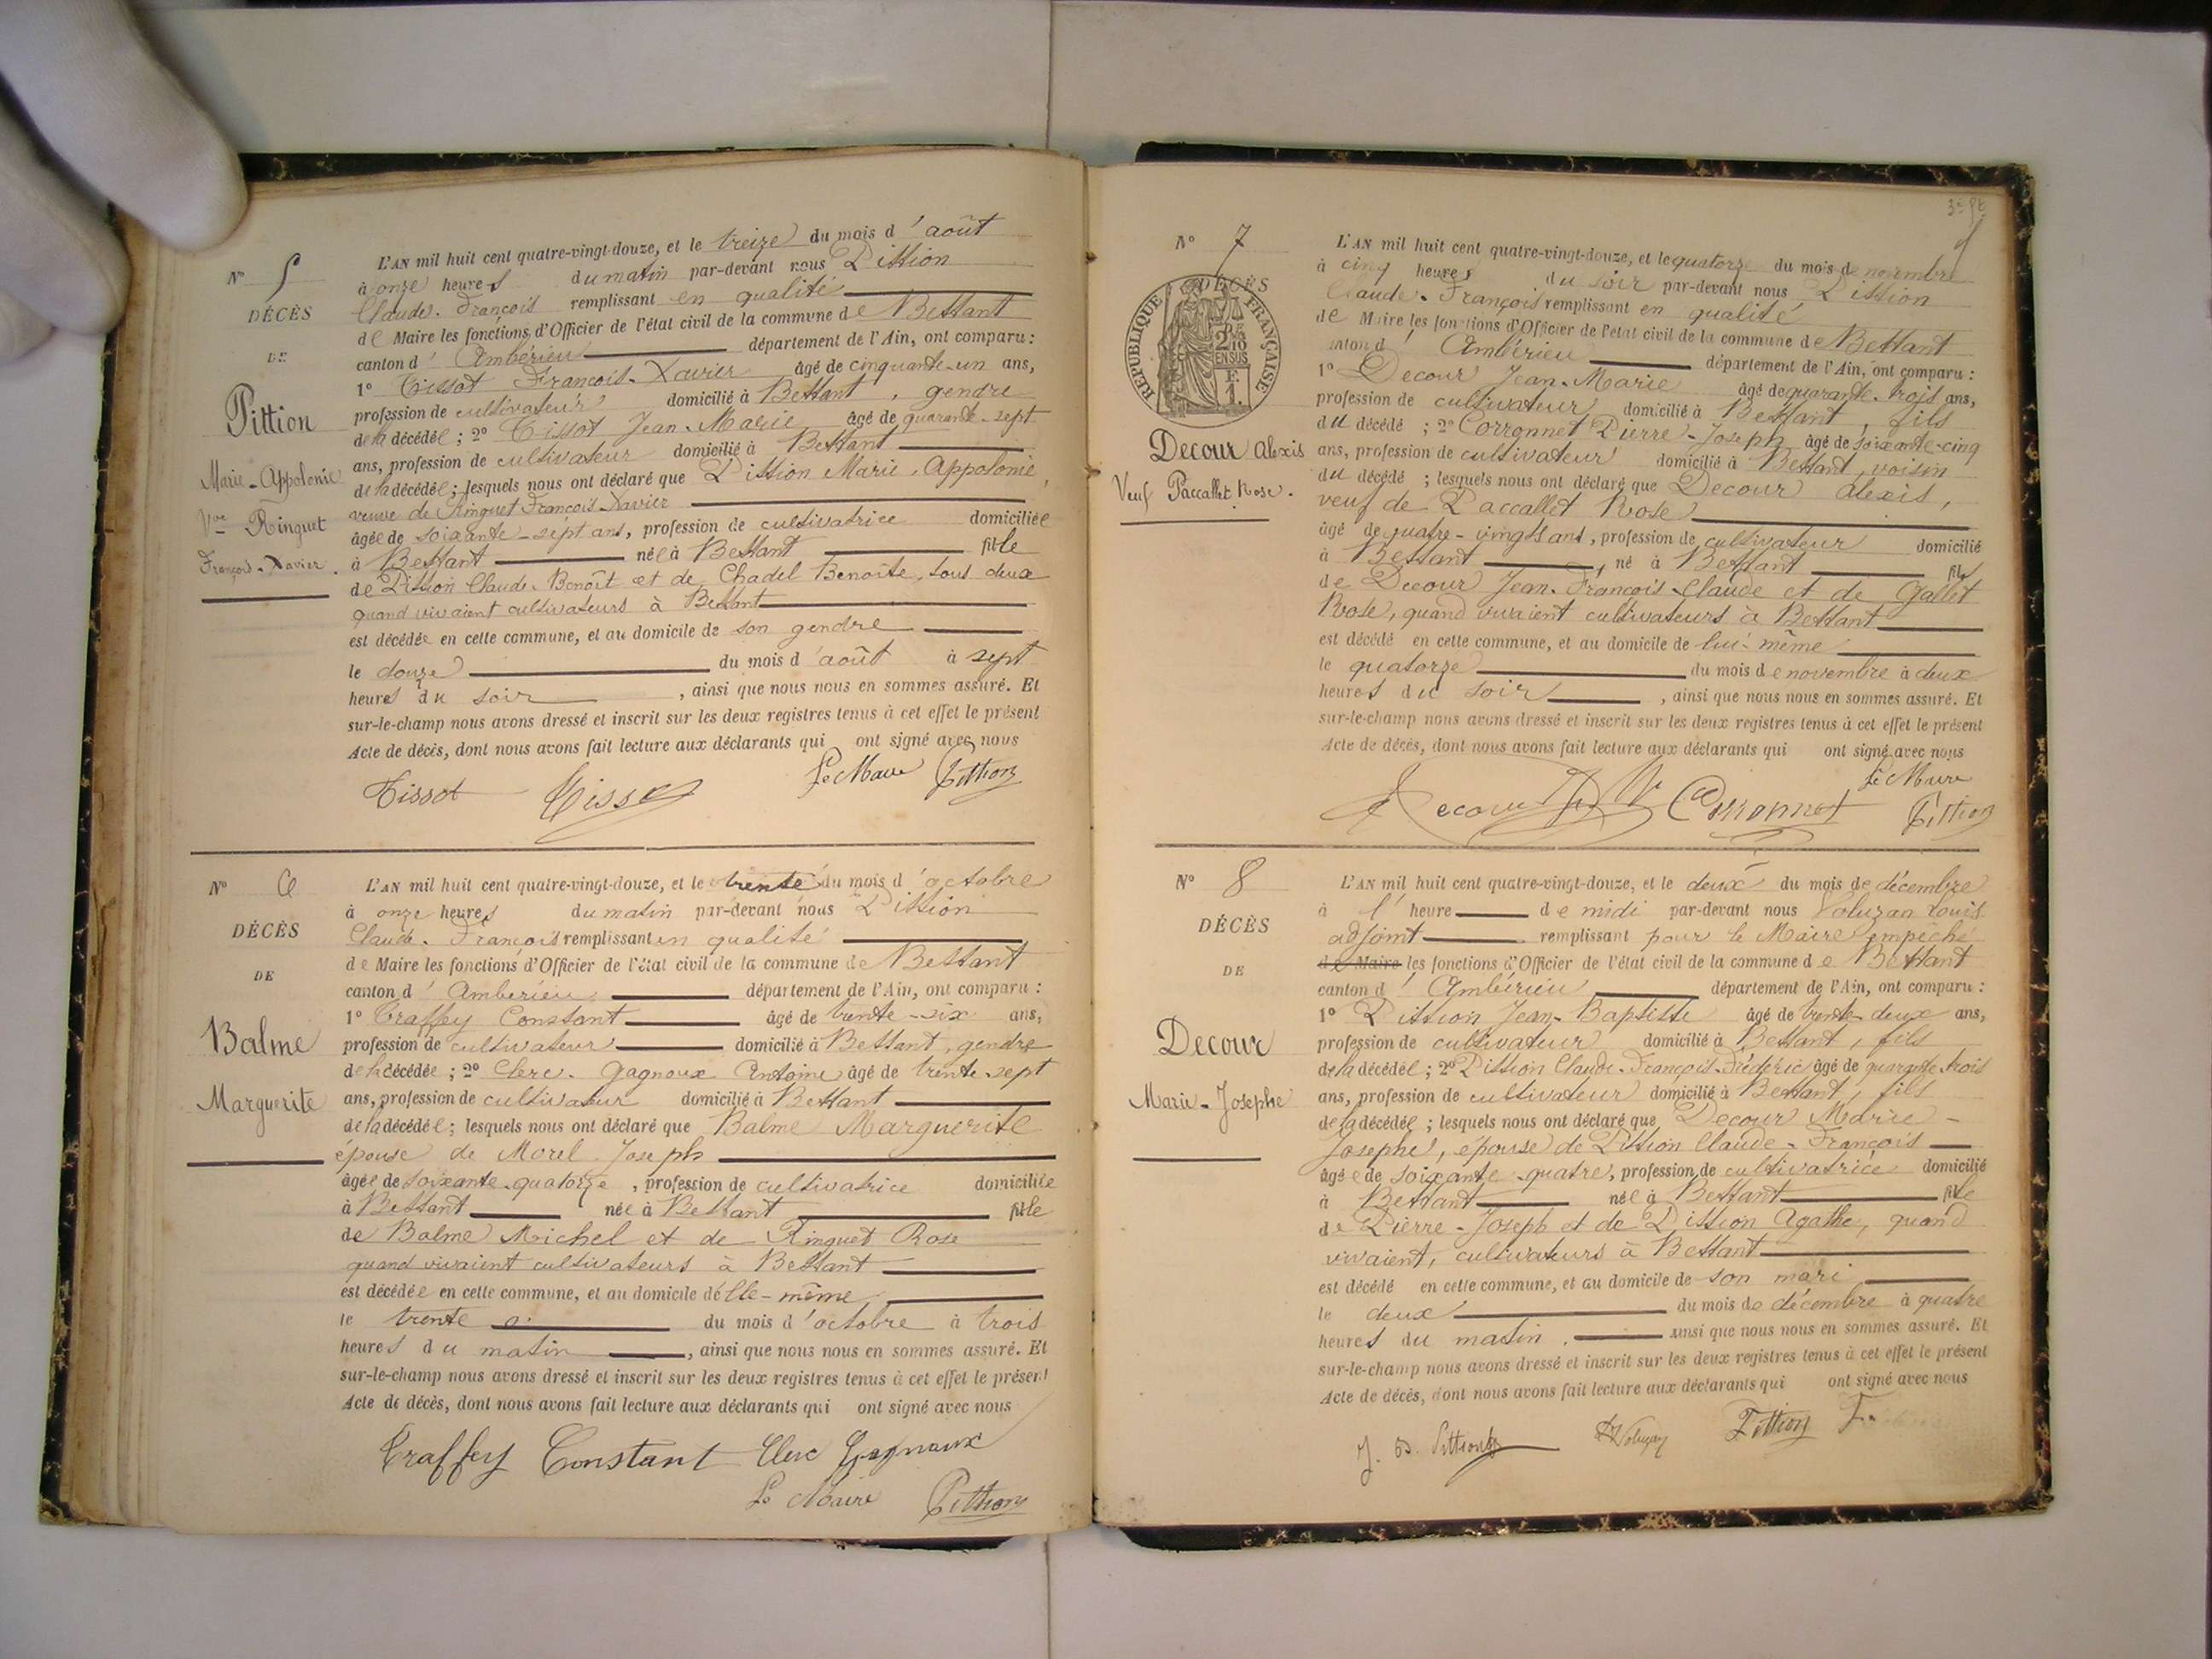 N° 5
DÉCÈS
DE
Pittion
Marie-Appolonie
Vve Ringuet
François-Xavier.
L'AN mil huit cent quatre-vingt-douze, et le treize du mois d'août
à onze heures du matin par-devant nous Pittion
Claude-François remplissant en qualité
de Maire les fonctions d'Officier de l'état civil de la commune de Bettant
canton d'Ambérieu département de l'Ain, ont comparu :
1° Tissot François-Xavier âgé de cinquante-un ans,
profession de cultivateur domicilié à Bettant, gendre
de la décédée ; 2° Tissot Jean-Marie âgé de quarante-sept
ans, profession de cultivateur domicilié à Bettant
de la décédée ; lesquels nous ont déclaré que Pittion Marie-Appolonie,
veuve de Ringuet François-Xavier
âgée de soixante-sept ans, profession de cultivatrice domiciliée
à Bettant née à Bettant fille
de Pittion Claude-Benoît et de Chadel Benoîte, tous deux
quand vivaient cultivateurs à Bettant
est décédée en cette commune, et au domicile de son gendre
le douze du mois d'août à sept
heures du soir, ainsi que nous nous en sommes assuré. Et
sur-le-champ nous avons dressé et inscrit sur les deux registres tenus à cet effet le présent
Acte de décès, dont nous avons fait lecture aux déclarants qui ont signé avec nous
Tissot Tissot Le Maire Pittion
N° 6
DÉCÈS
DE
Balme
Marguerite
L'AN mil huit cent quatre-vingt-douze, et le trente du mois d'octobre
à onze heures du matin par-devant nous Pittion
Claude-François remplissant en qualité
de Maire les fonctions d'Officier de l'état civil de la commune de Bettant
canton d'Amberieu département de l'Ain, ont comparu :
1° Traffey Constant âgé de trente-six ans,
profession de cultivateur domicilié à Bettant, gendre
de la décédée ; 2° Clerc-Gagnoux Antoine âgé de trente-sept
ans, profession de cultivateur domicilié à Bettant
de la décédée ; lesquels nous ont déclaré que Balme Marguerite
épouse de Morel Joseph
âgée de soixante-quatorze, profession de cultivatrice domiciliée
à Bettant née à Bettant fille
de Balme Michel et de Ringuet Rose
quand vivaient cultivateurs à Bettant
est décédée en cette commune, et au domicile d'elle-même
le trente du mois d'octobre à trois
heures du matin, ainsi que nous nous en sommes assuré. Et
sur-le-champ nous avons dressé et inscrit sur les deux registres tenus à cet effet le présent
Acte de décès, dont nous avons fait lecture aux déclarants qui ont signé avec nous
Traffey Constant Clerc Gagnoux
Le Maire Pittion
N° 7
DÉCÈS
RÉPUBLIQUE FRANÇAISE
2/10 EN SUS
F. 1.
Decour Alexis
Veuf Paccallet Rose.
L'AN mil huit cent quatre-vingt-douze, et le quatorze du mois de novembre
à cinq heures du soir par-devant nous Pittion
Claude-François remplissant en qualité
de Maire les fonctions d'Officier de l'état civil de la commune de Bettant
canton d'Ambérieu département de l'Ain, ont comparu :
1° Decour Jean-Marie âgé de quarante-trois ans,
profession de cultivateur domicilié à Bettant, fils
du décédé ; 2° Corronnet Pierre-Joseph âgé de soixante-cinq
ans, profession de cultivateur domicilié à Bettant, voisin
du décédé ; lesquels nous ont déclaré que Decour Alexis,
veuf de Paccallet Rose
âgé de quatre-vingts ans, profession de cultivateur domicilié
à Bettant, né à Bettant fils
de Decour Jean-François-Claude et de Gallet
Rose, quand vivaient cultivateurs à Bettant
est décédé en cette commune, et au domicile de lui-même
le quatorze du mois de novembre à deux
heures du soir, ainsi que nous nous en sommes assuré. Et
sur-le-champ nous avons dressé et inscrit sur les deux registres tenus à cet effet le présent
Acte de décès, dont nous avons fait lecture aux déclarants qui ont signé avec nous
Le Maire
Decour Corronnet Pittion
N° 8
DÉCÈS
DE
Decour
Marie-Josephe
L'AN mil huit cent quatre-vingt-douze, et le deux du mois de décembre
à l'heure de midi par-devant nous Voluzan Louis
adjoint remplissant pour le Maire empêché
de Maire les fonctions d'Officier de l'état civil de la commune de Bettant
canton d'Ambérieu département de l'Ain, ont comparu :
1° Pittion Jean-Baptiste âgé de trente-deux ans,
profession de cultivateur domicilié à Bettant, fils
de la décédée ; 2° Pittion Claude-François-Frédéric âgé de quarante-trois
ans, profession de cultivateur domicilié à Bettant, fils
de la décédée ; lesquels nous ont déclaré que Decour Marie-
Josephe, épouse de Pittion Claude-François
âgée de soixante-quatre, profession de cultivatrice domicilié
à Bettant née à Bettant fille
de Pierre-Joseph et de Pittion Agathe, quand
vivaient, cultivateurs à Bettant
est décédé en cette commune, et au domicile de son mari
le deux du mois de décembre à quatre
heures du matin. ainsi que nous nous en sommes assuré. Et
sur-le-champ nous avons dressé et inscrit sur les deux registres tenus à cet effet le présent
Acte de décès, dont nous avons fait lecture aux déclarants qui ont signé avec nous
J. B. Pittion Voluzan Pittion F.